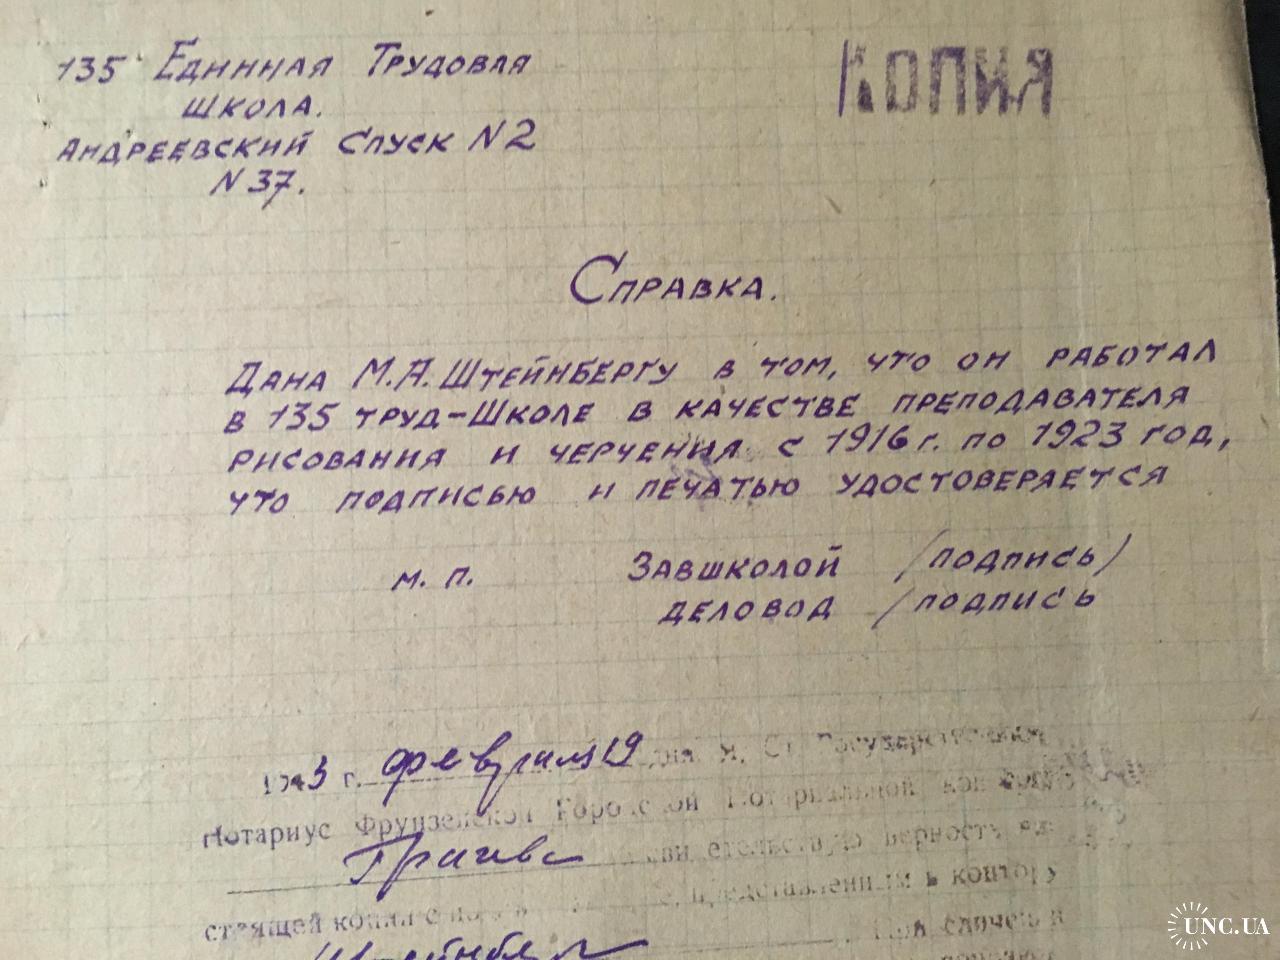 135 Единная Трудовая
школа.
Андреевский спуск N2
N 37.
КОПИЯ
Справка.
Дана М.А. Штейнбергу в том, что он работал
в 135 труд-школе в качестве преподавателя
рисования и черчения с 1916 г. по 1923 год,
что подписью и печатью удостоверяется
м. п. Завшколой /подпись/
деловод /подпись
г. февраля 19 дня Я, Ст. Государственный
Нотариус Фрунзенской Городской Нотариальной конторы
верность
стоящей копии с представленным в контору
При сличении
UNC.UA